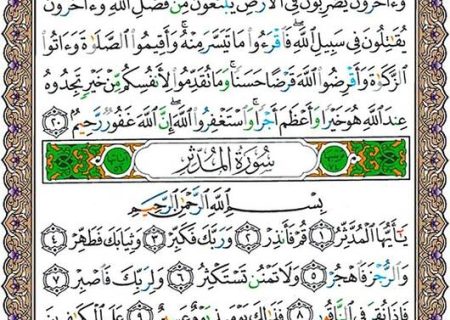 وَءَاخَرُونَ يَضْرِبُونَ فِى ٱلْأَرْضِ يَبْتَغُونَ مِن فَضْلِ ٱللَّهِ وَءَاخَرُونَ
يُقَٰتِلُونَ فِى سَبِيلِ ٱللَّهِ فَٱقْرَءُوا۟ مَا تَيَسَّرَ مِنْهُ وَأَقِيمُوا۟ ٱلصَّلَوٰةَ وَءَاتُوا۟
ٱلزَّكَوٰةَ وَأَقْرِضُوا۟ ٱللَّهَ قَرْضًا حَسَنًا وَمَا تُقَدِّمُوا۟ لِأَنفُسِكُم مِّنْ خَيْرٍ تَجِدُوهُ
عِندَ ٱللَّهِ هُوَ خَيْرًا وَأَعْظَمَ أَجْرًا وَٱسْتَغْفِرُوا۟ ٱللَّهَ إِنَّ ٱللَّهَ غَفُورٌ رَّحِيمٌۢ ٢٠
سُورَةُ الْمُدَّثِّرِ
بِسْمِ ٱللَّهِ ٱلرَّحْمَٰنِ ٱلرَّحِيمِ
يَٰٓأَيُّهَا ٱلْمُدَّثِّرُ ١ قُمْ فَأَنذِرْ ٢ وَرَبَّكَ فَكَبِّرْ ٣ وَثِيَابَكَ فَطَهِّرْ ٤
وَٱلرُّجْزَ فَٱهْجُرْ ٥ وَلَا تَمْنُن تَسْتَكْثِرُ ٦ وَلِرَبِّكَ فَٱصْبِرْ ٧
فَإِذَا نُقِرَ فِى ٱلنَّاقُورِ ٨ فَذَٰلِكَ يَوْمَئِذٍ يَوْمٌ عَسِيرٌ ٩ عَلَى ٱلْكَٰفِرِينَ